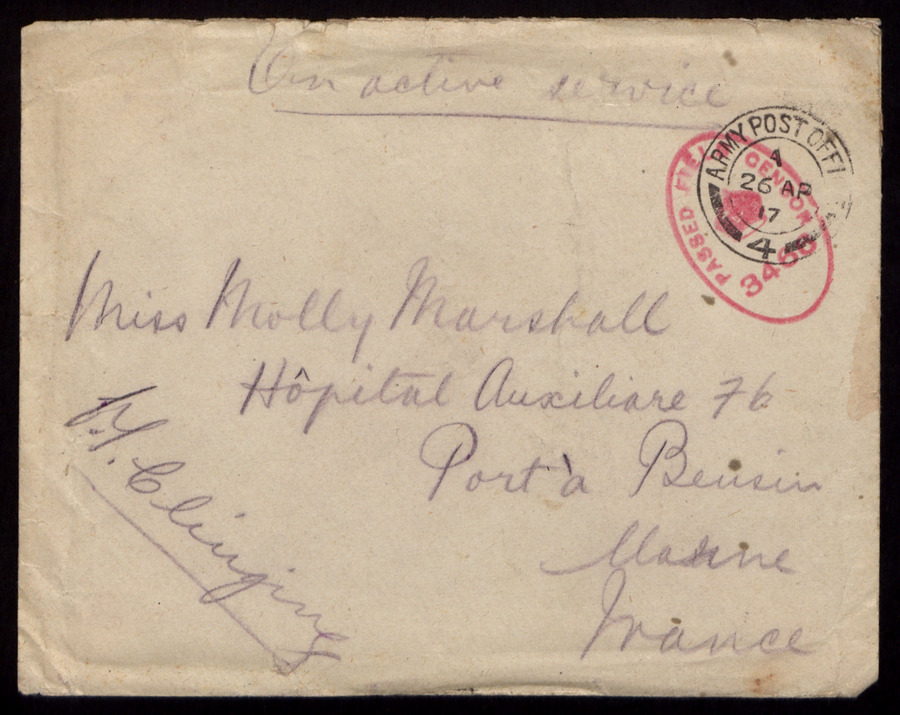 On active service
ARMY POST OFFI
A
26 AP
17
4
PASSED FIEL CENSOR
3466
Miss Molly Marshall
Hôpital Auxiliare 76
Port à Bensin
Marne
France
Clinging